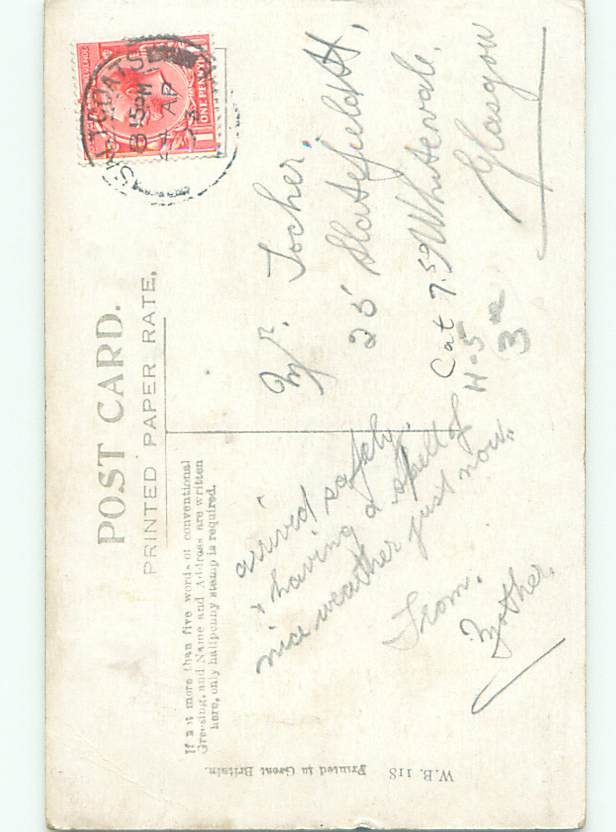 POST CARD.
PRINTED PAPER RATE.
If not more than five words of conventional
Greeting, and Name and Address are written
here, only halfpenny stamp is required.
arrived safely
& having a spell of
nice weather just now.
From.
Mother.
ONE PENNY
8 15 PM
AP
Mr. Locher,
25 Slatefield St,
Whitevale.
Glasgow
Cat 7.59
H-5
3
W.B. 118
Printed in Great Britain.